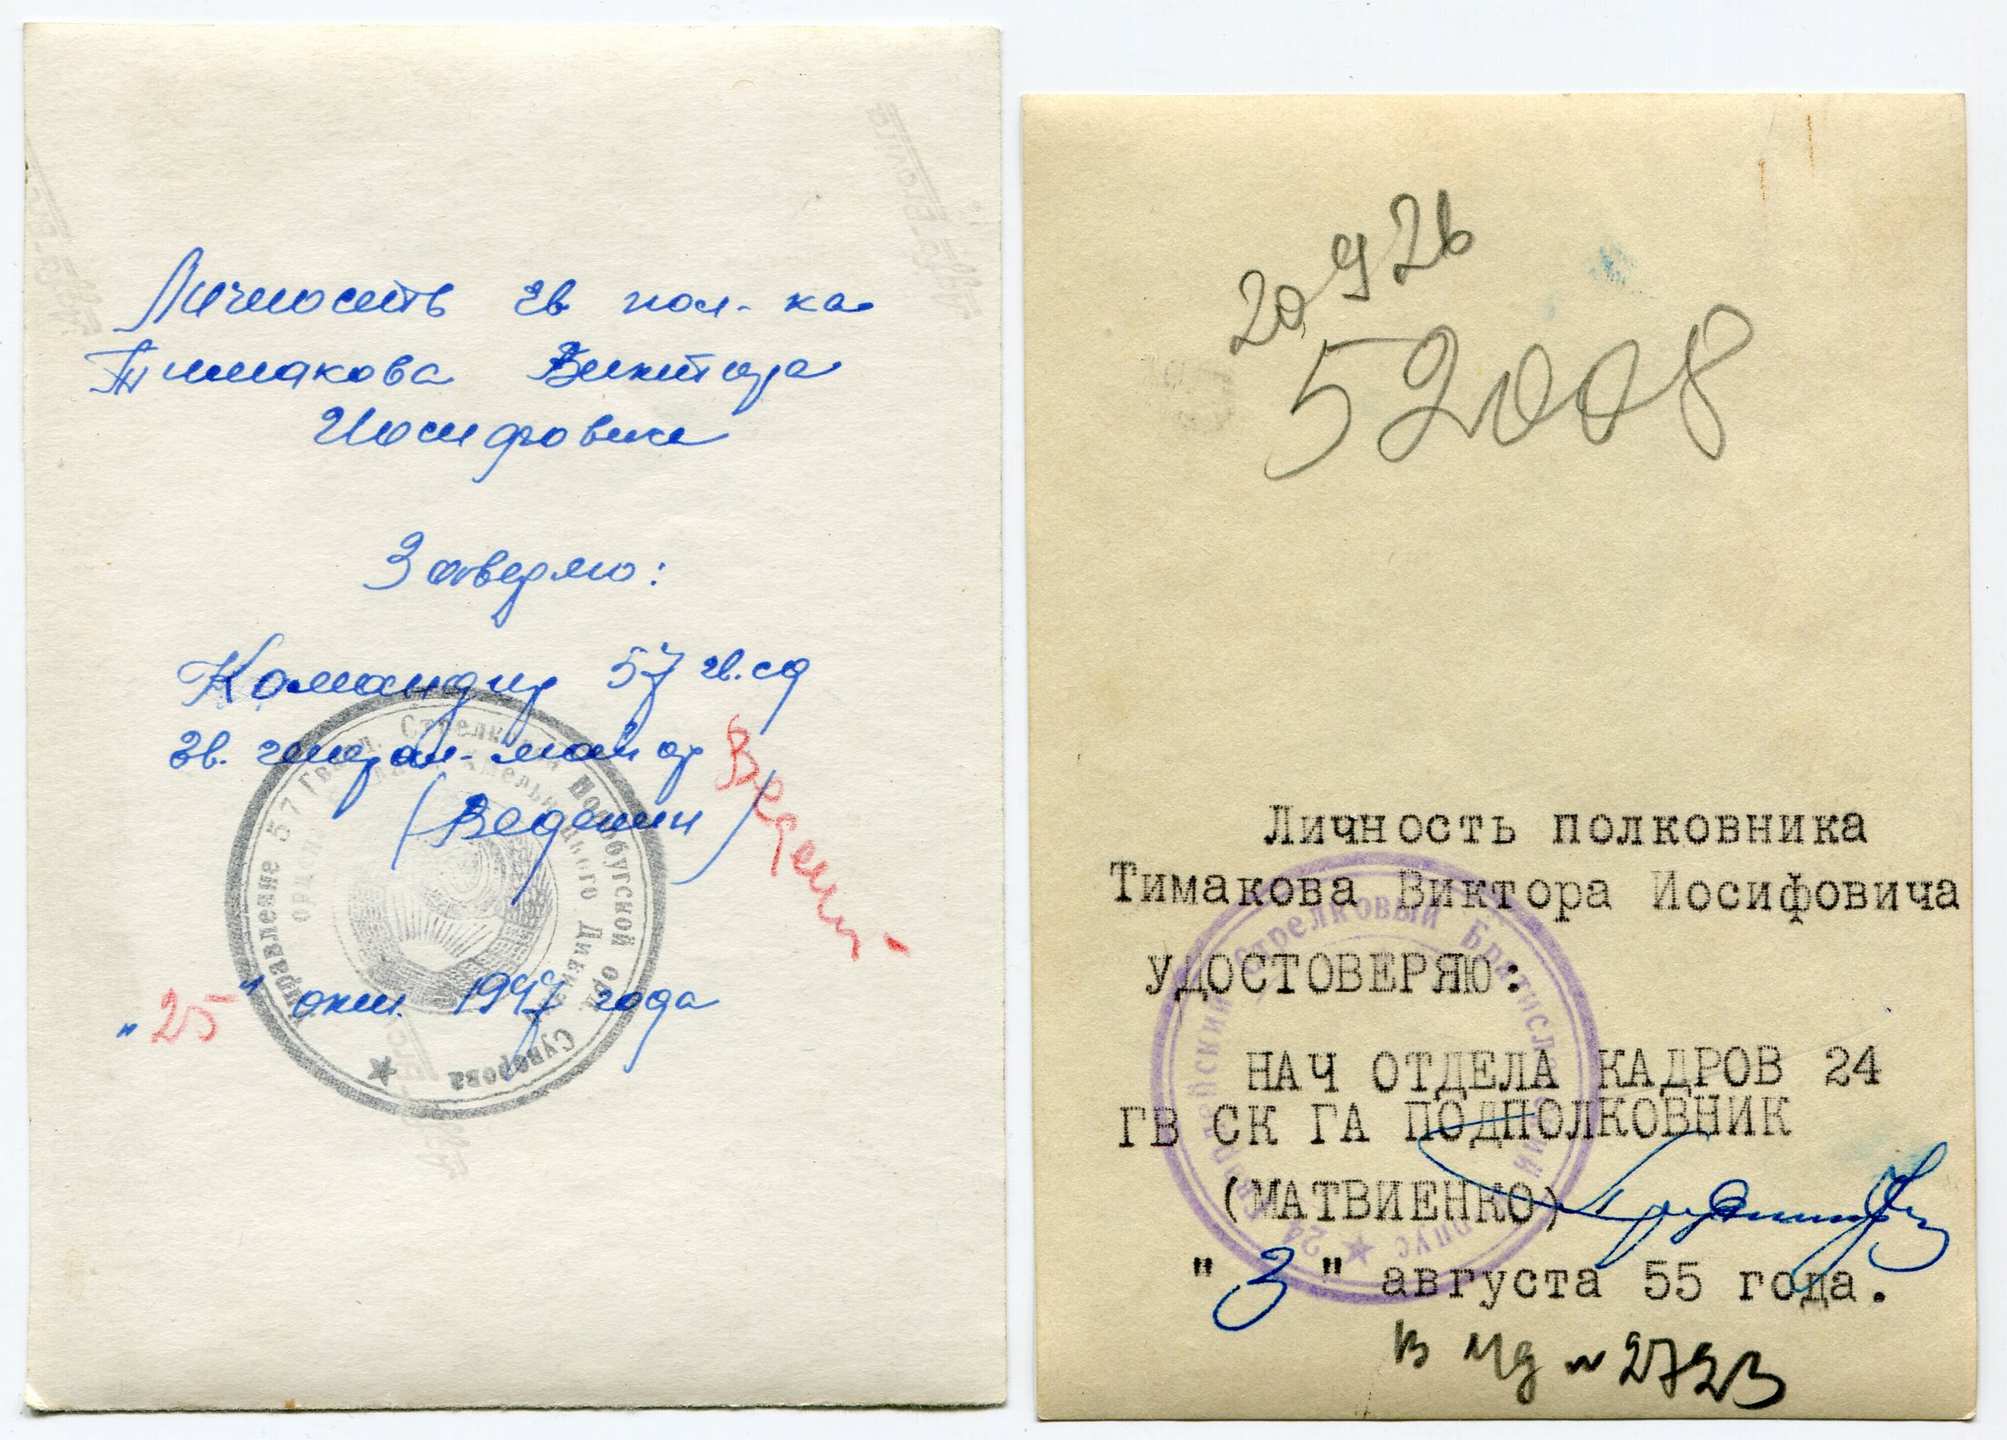 Личность гв пол-ка
Тимакова Виктора
Иосифовича
Заверяю:
Командир 57 гв.сд
гв. генерал-майор Веденин
(Веденин)
"25" окт. 1947 года
Управление 57 Гвард. Стрелковой Новобугской орд. Суворова
Дивизии
20926
52008
Личность полковника
Тимакова Виктора Иосифовича
УДОСТОВЕРЯЮ:
НАЧ ОТДЕЛА КАДРОВ 24
ГВ СК ГА ПОДПОЛКОВНИК
(МАТВИЕНКО)
"3" августа 55 года.
24 Гвардейский Стрелковый Братиславский Корпус
В ЛД № 2723